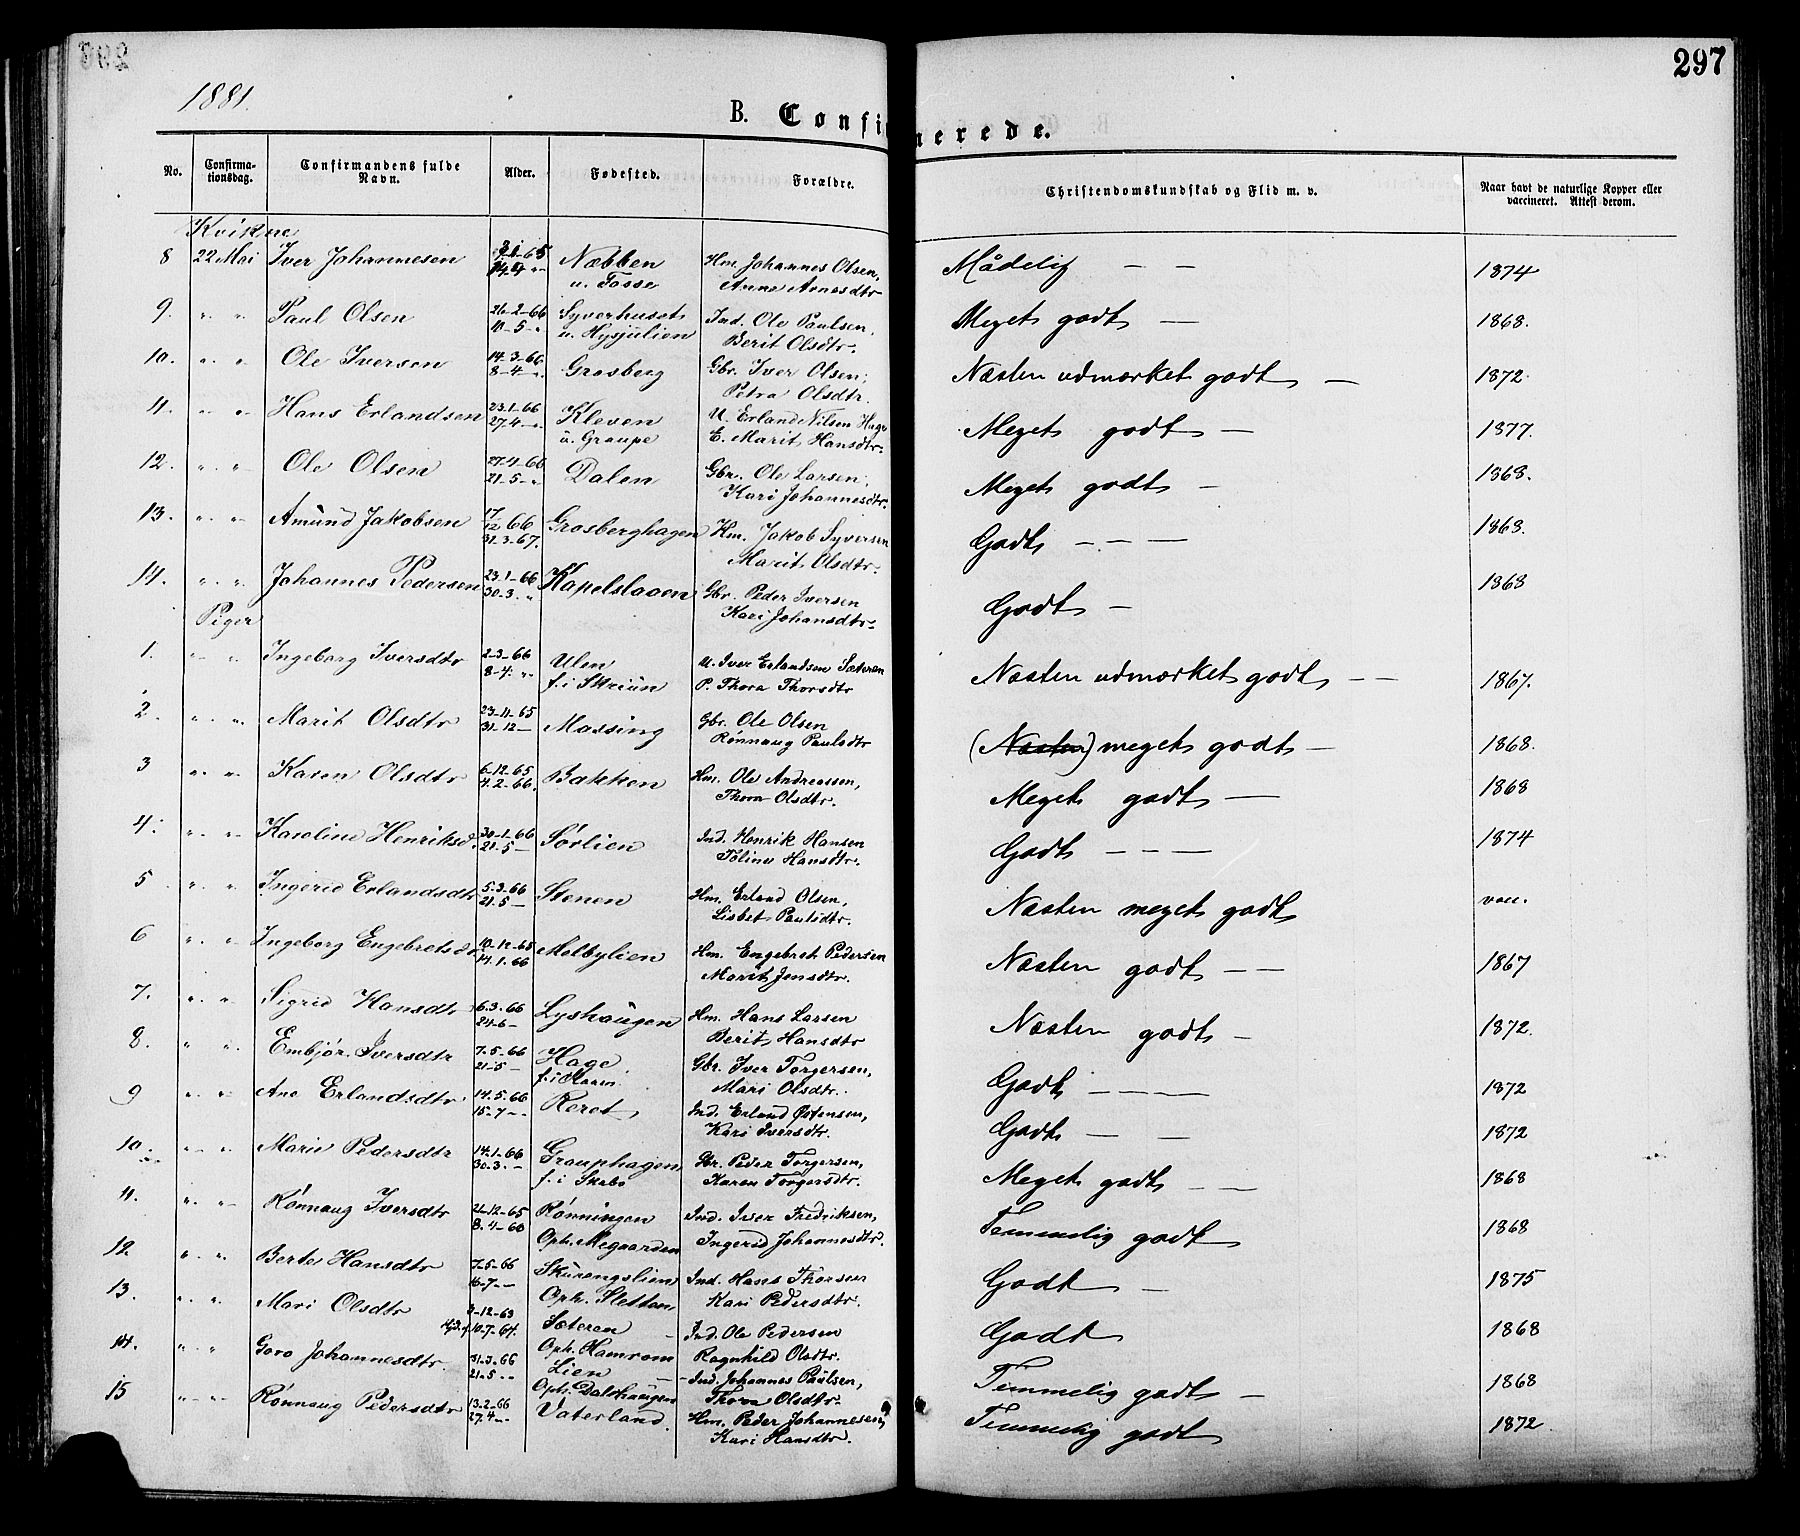 297
1881.
B. Confi nerede.
No. Confirma-tionsdag. Confirmandens fulde Navn. Alder. Fødested. Forældre. Christendomskundskab og Flid m. v. Naar havt de naturlige Kopper eller vaccineret. Attest derom.
Kvikne
8 22 Mai Iver Johannesen 65 Næbben Hm. Johannes Olsen, Mådelig — — 1874
u. Fosse Anne Arnesdtr
9. " " Paul Olsen 26-2-66 Syverhuset Ind. Ole Paulsen, Meget godt — 1868.
10-5-" u. Hysjulien Berit Olsdtr.
10. " " Ole Iversen 14-3-66 Grosberg Gbr. Iver Olsen, Næsten udmærket godt — 1872.
8-4-" Petra Olsdtr.
11. " " Hans Erlandsen 23-1-66 Kleven U. Erland Nilsen Hage Meget godt — 1877.
27-4-" u. Graupe E. Marit Hansdtr.
12. " " Ole Olsen 27-4-66 Dalen Gbr. Ole Larsen, Meget godt — 1868.
21-5-" Kari Johannesdtr.
13. " " Amund Jakobsen 17/12 66 Grosberghagen Hm. Jakob Syversen Godt — — — 1868.
31-3-67. Marit Olsdtr.
14. " " Johannes Pedersen 23-1-66 Kapelslaaen Gbr. Peder Iversen Godt — 1868
30-3. " Kari Johansdtr.
Piger
1. " " Ingeborg Iversdtr 2-3-66 Ulen U. Iver Erlandsen Sæteren Næsten udmærket godt — — 1867.
8-4. " f. i Skriün P. Thora Thorsdtr
2. " " Marit Olsdtr 23-11-65 Massing Gbr. Ole Olsen (Næsten) meget godt — 1868.
31-12— Rønnaug Paulsdtr
3 " " Karen Olsdtr 6-12-65 Bakken Hm. Ole Andreassen, Meget godt — 1868
4-2-66. Thora Olsdtr.
4. " " Karoline Henriksd. 30-1-66 Sørlien Ind. Henrik Hansen Godt — — — 1874
21-5— Toline Hansdtr.
5 " " Ingerid Erlandsdtr 5-3-66 Stenen Hm. Erland Olsen, Næsten meget godt vac.
21-5— Lisbet Paulsdtr.
6 " " Ingeborg Engebretsd. 10-12-65 Melbylien Hm. Engebret Pedersen Næsten godt — — 1867
14-1-66 Marit Jensdtr.
7. " " Sigrid Hansdtr 6-3-66 Lyshaugen Hm. Hans Larsen Næsten godt — 1872.
24-6— Berit Hansdtr
8. " " Embjør Iversdtr 7-5-66 Hage Gbr. Iver Torgersen, Godt — — — 1872
21-5— f. i Mari Olsdtr.
9 " " Ane Erlandsdtr 14-5-66 Reret Ind. Erland Østensen, Godt — — 1872
15-7— Kari Iversdtr.
10. " " Marie Pedersdtr 14-1-66 Grauphagen Gbr. Peder Torgersen, Meget godt — — 1868
30-3. — f. i Skabo Karen Torgersdtr.
11. " " Rønnaug Iversdtr 21-12-65 Rønningen Ind. Iver Fredriksen, Temmelig godt 1868
8-4-66 Oph. Megaarden Ingerid Johannesdtr.
12 " " Berte Hansdtr 7-5-66 Skurengslien Ind. Hans Thorsen Godt — 1875
16-7-— Oph. Sletten Kari Pedersdtr.
13. " " Mari Olsdtr 3-12-63 Sæteren — Ind. Ole Pedersen Godt 1868
10-7-64. Oph. Hamrom Ragnhild Olsdtr.
14. " " Goro Johannesdtr. 31-3-66 Lien — Ind. Johannes Paulsen, Temmelig godt — 1868
21-5-" Oph. Dalshaugen Thora Olsdtr.
15 " " Rønnaug Pedersdtr 13-2-66 Vaterland. Hm. Peder Johannesen, Temmelig godt 1872.
27-4-— Kari Hansdtr.